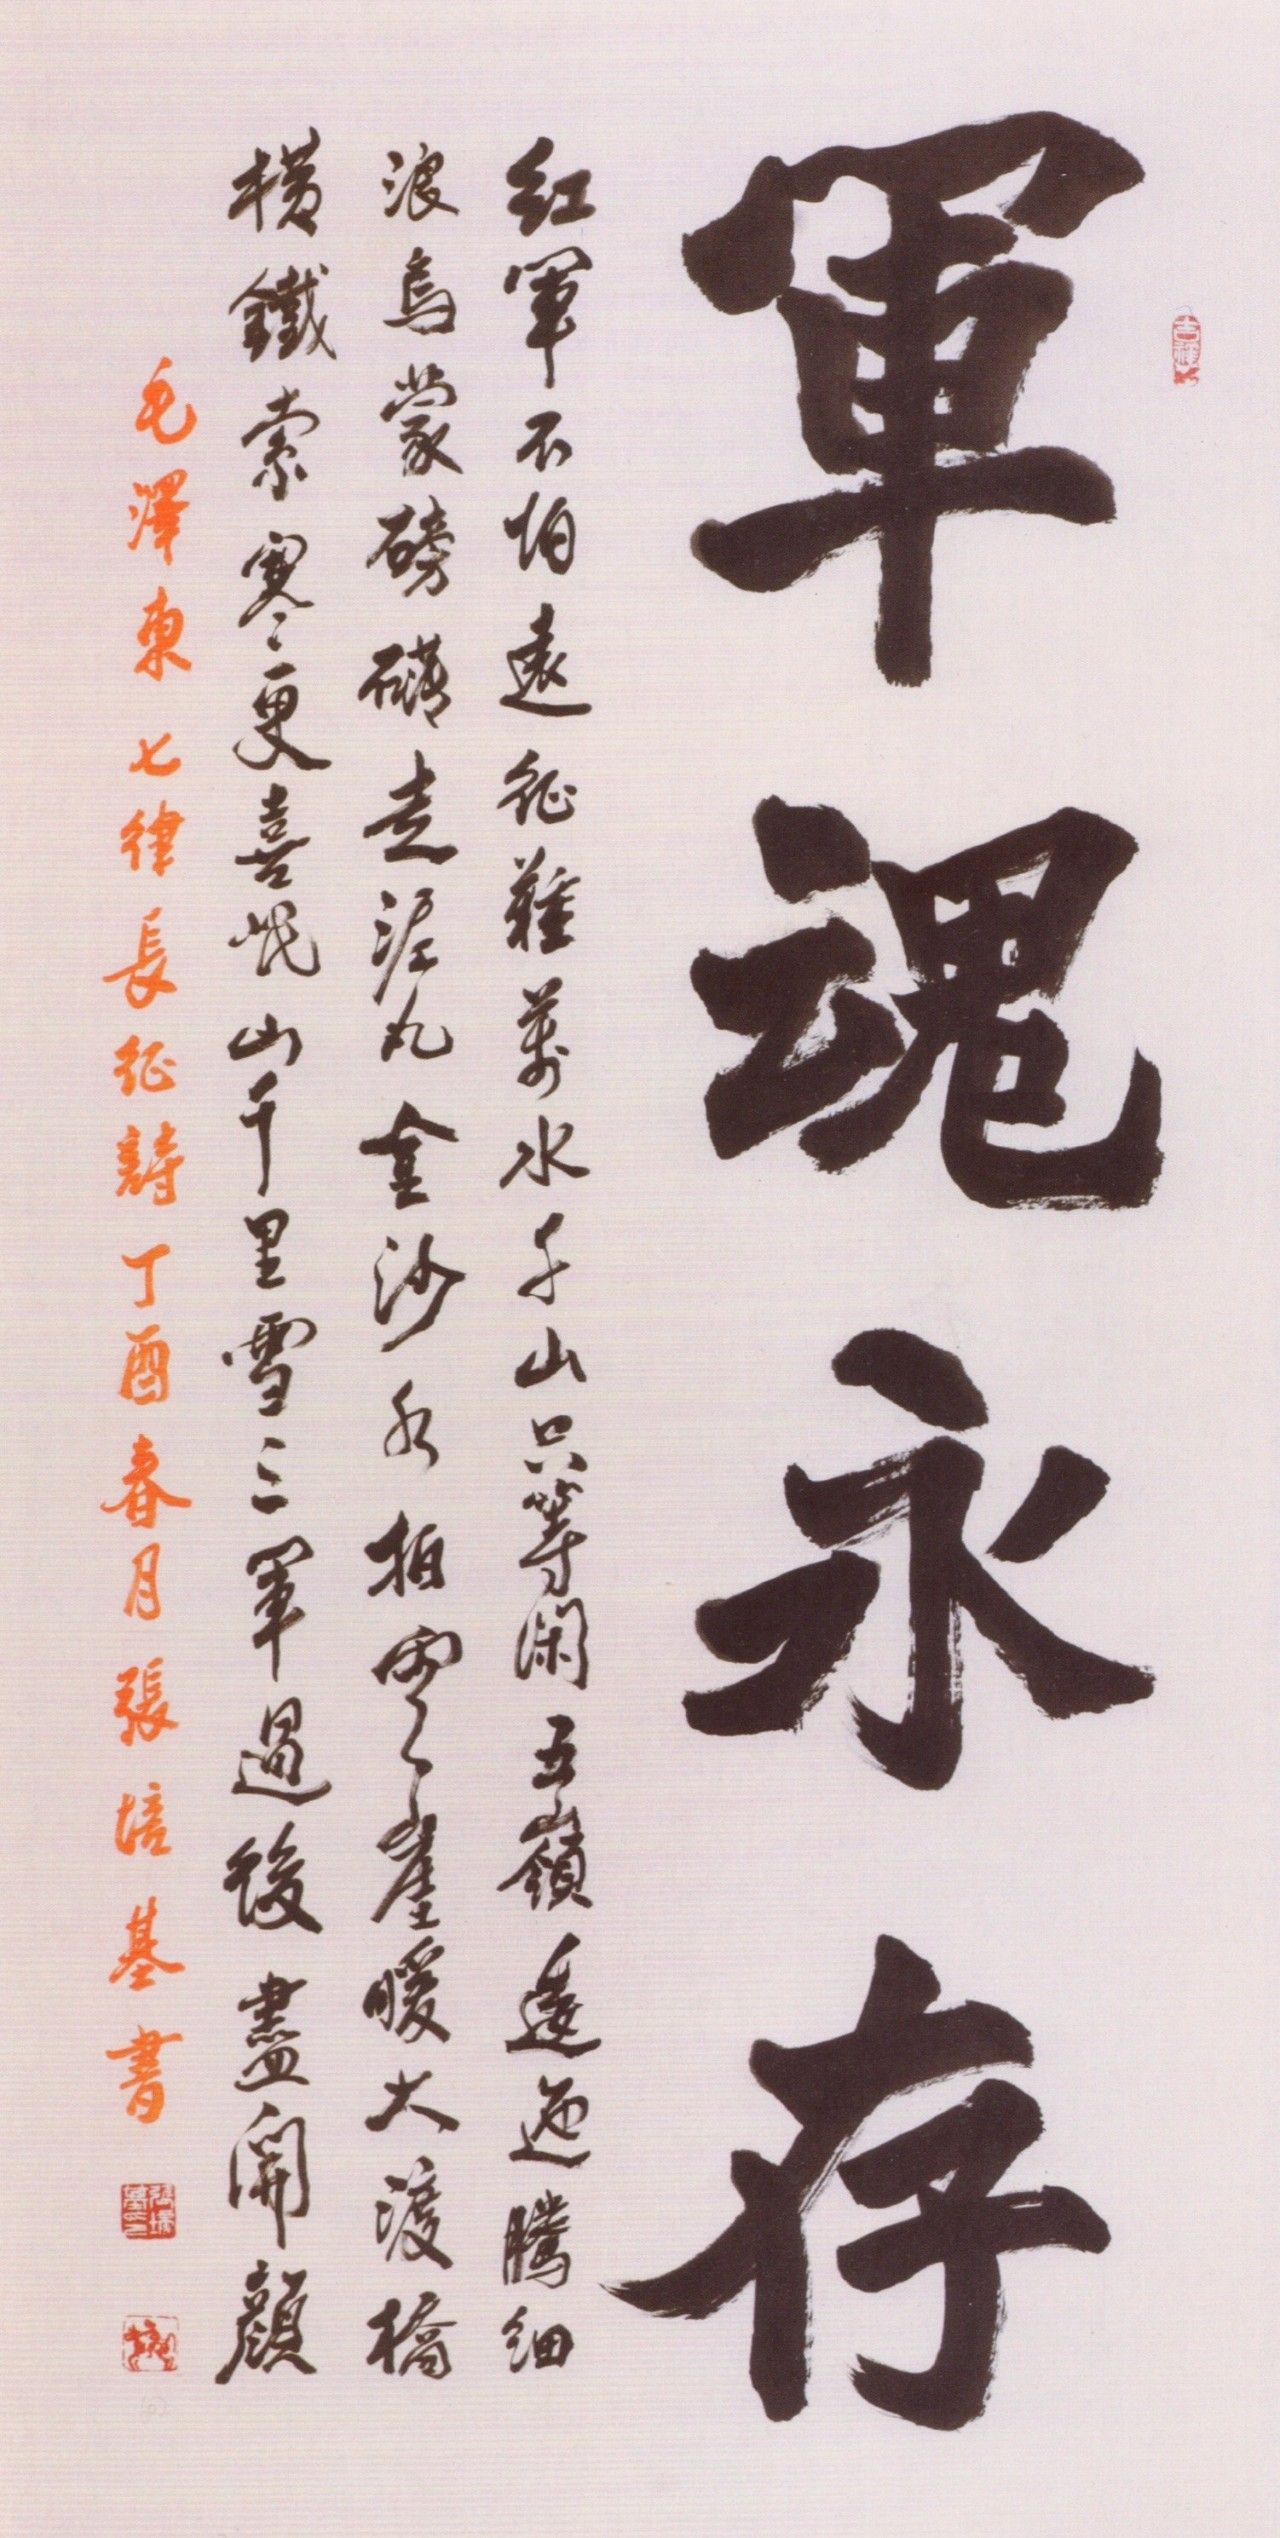 軍魂永存
吉祥
紅軍不怕遠征難萬水千山只等閑五嶺逶迤騰細
浪烏蒙磅礴走泥丸金沙水拍雲崖暖大渡橋
橫鐵索寒更喜岷山千里雪三軍過後盡開顏
毛澤東七律長征詩丁酉春月張培基書
張培基印